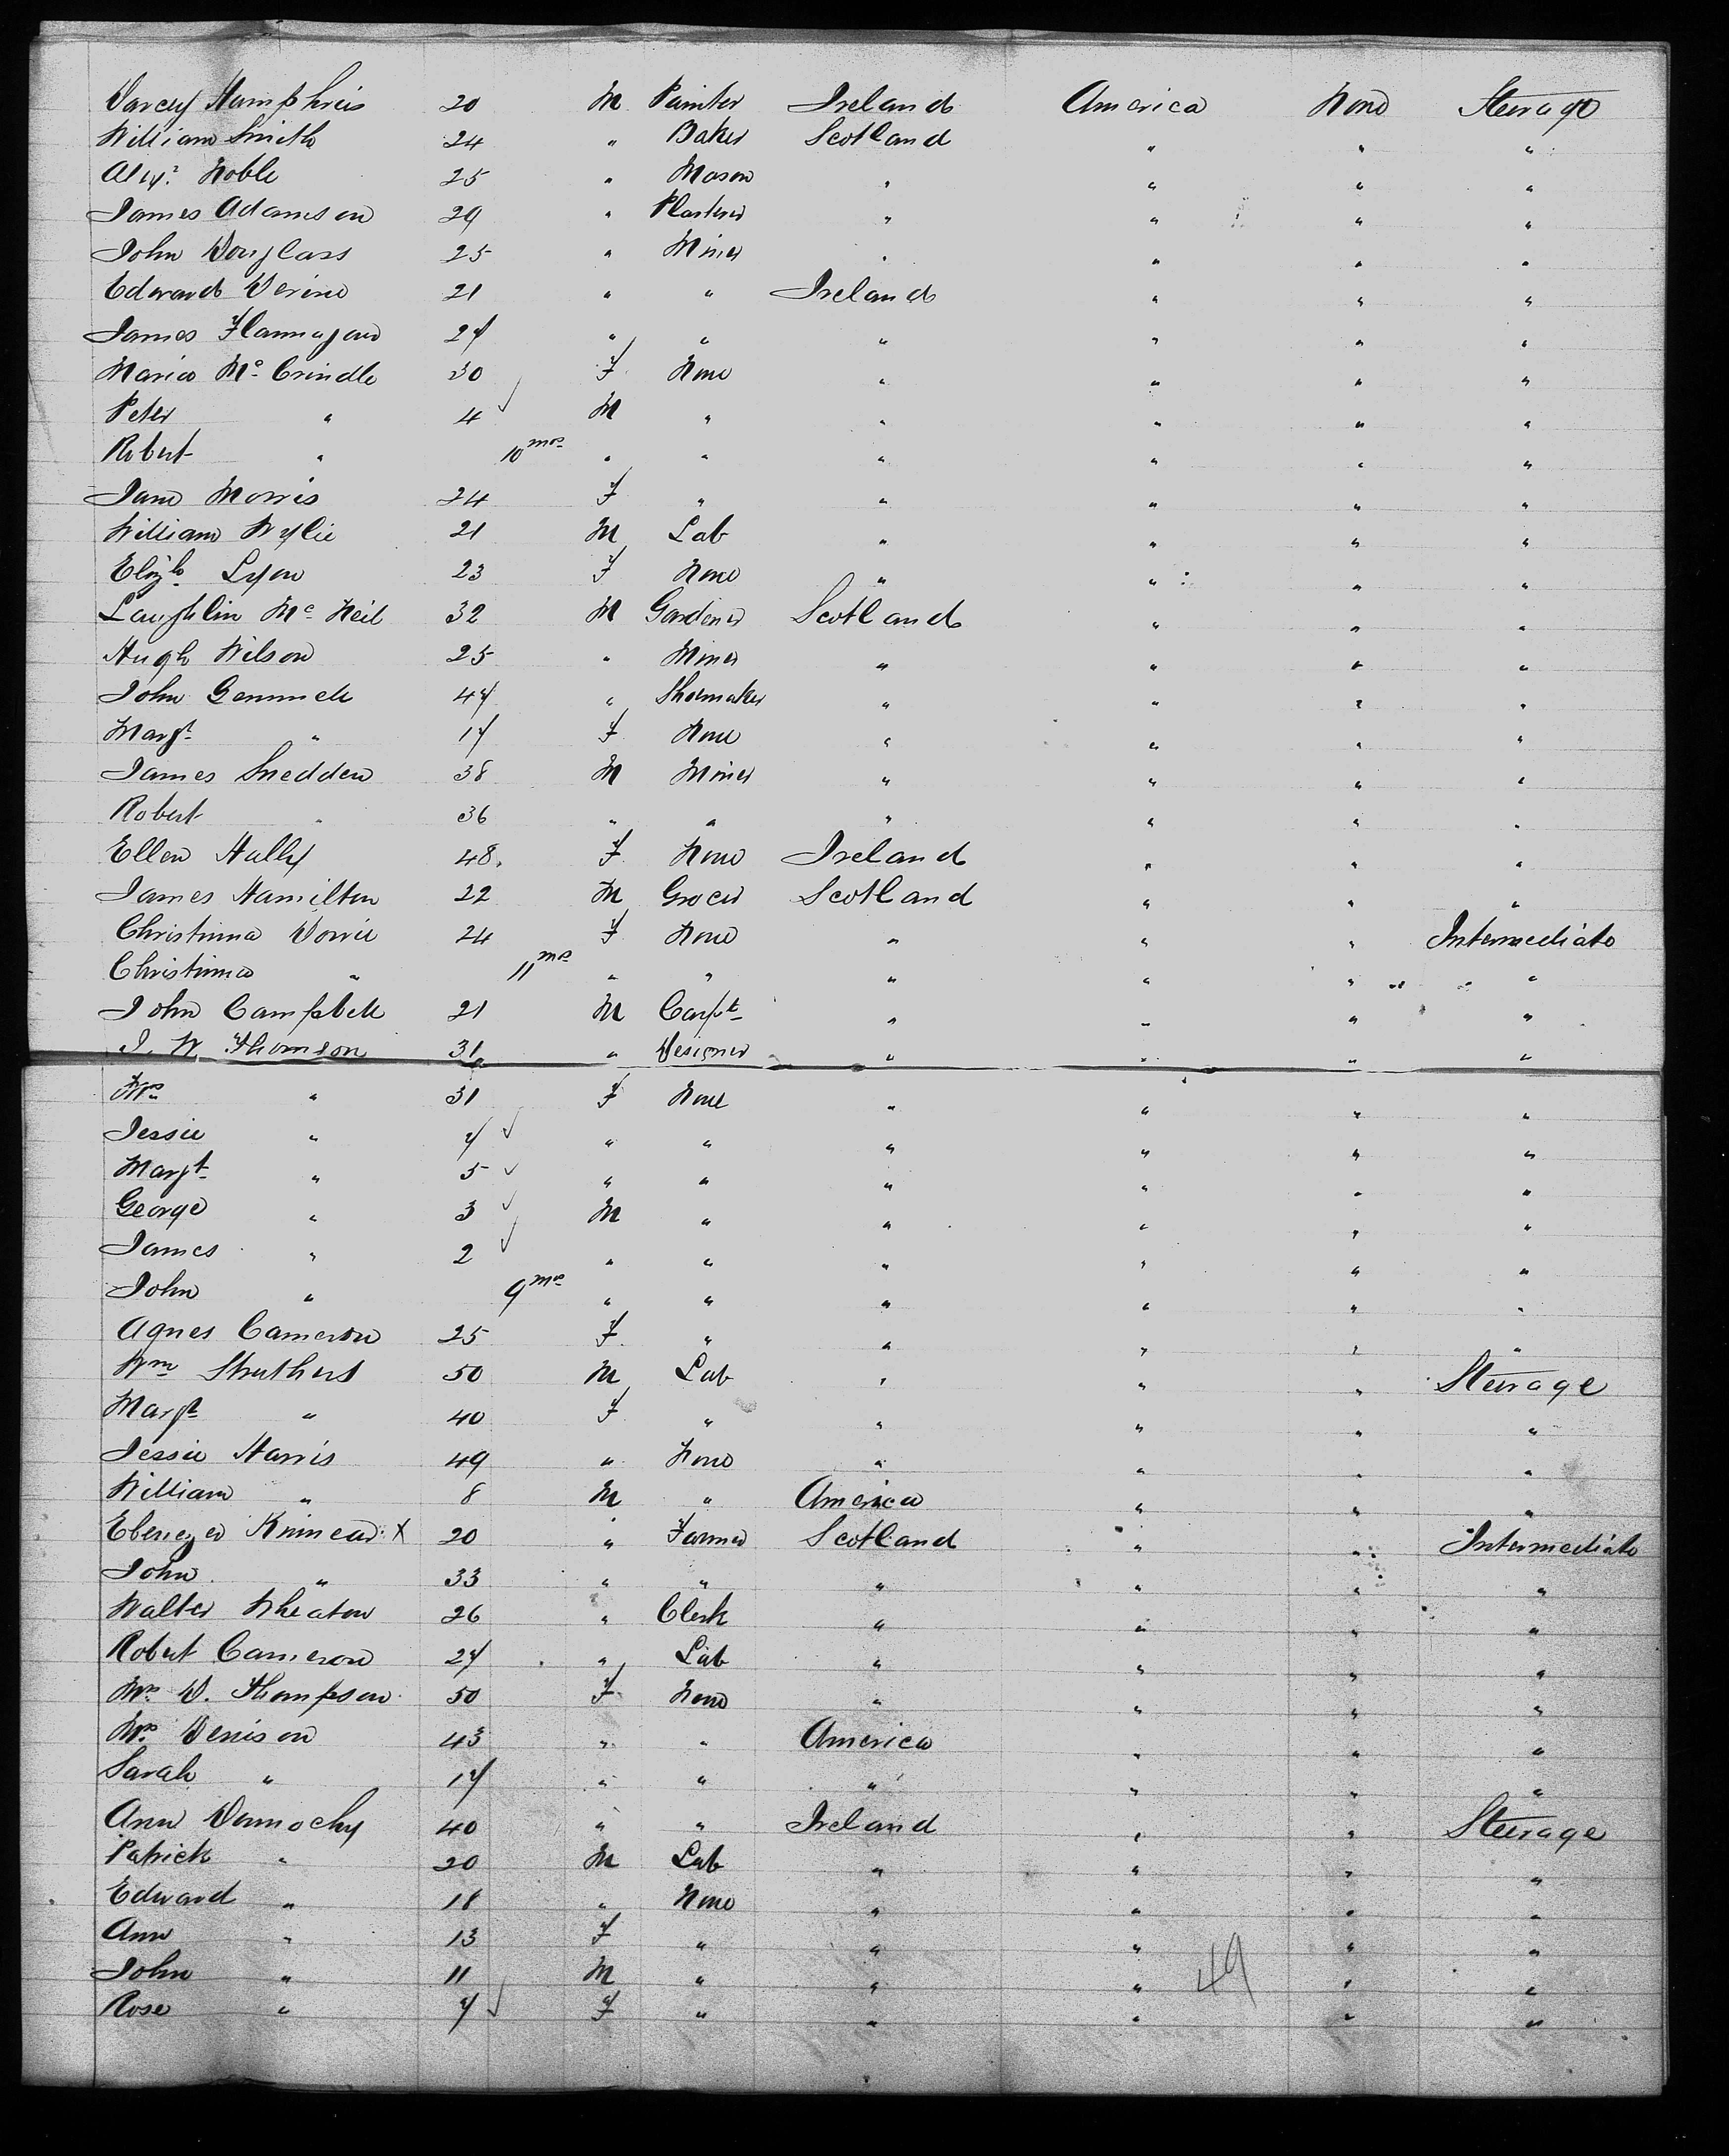 Darcy Humphries 20 M Painter Ireland America None Steerage
William Smith 24 " Baker Scotland " " "
Alexr. Noble 25 " Mason " " " "
James Adamson 29 " Plasterer " " " "
John Douglass 25 " Miner " " " "
Edward Devine 21 " " Ireland " " "
James Flannagan 27 " " " " " "
Maria McCrindle 30 F None " " " "
Peter " 4 M " " " " "
Robert " 10 mos " " " " " "
Jane Morris 24 F " " " " "
William Wylie 21 M Lab " " " "
Elizh Lyon 23 F None " " " "
Laughlin McNeil 32 M Gardener Scotland " " "
Hugh Wilson 25 " Miner " " " "
John Gemmell 47 " Shoemaker " " " "
Margt " 17 F None " " " "
James Snedden 38 M Miner " " " "
Robert " 36 " " " " " "
Ellen Hally 48 F None Ireland " " "
James Hamilton 22 M Grocer Scotland " " "
Christinna Dorrie 24 F None " " " Intermediate
Christinna " 11 mos " " " " " "
John Campbell 21 M Carpt " " " "
J. W. Thomson 31 " Designer " " " "
Mrs " 31 F None " " " "
Jessie " 7 " " " " " "
Margt " 5 " " " " " "
George " 3 M " " " " "
James " 2 " " " " " "
John " 9 mos " " " " " "
Agnes Cameron 25 F " " " " "
Wm Struthers 50 M Lab " " " Steerage
Margt " 40 F " " " " "
Jessie Harris 49 " None " " " "
William " 8 M " America " " "
Ebenezer Kinnear X 20 " Farmer Scotland " " Intermediate
John " 33 " " " " " "
Walter Wheaton 26 " Clerk " " " "
Robert Cameron 27 " Lab " " " "
Mrs D. Thompson 50 F None " " " "
Mrs Denison 43 " " America " " "
Sarah " 17 " " " " " "
Ann Donnochy 40 " " Ireland " " Steerage
Patrick " 20 M Lab " " " "
Edward " 18 " None " " " "
Ann " 13 F " " " " "
John " 11 M " " " " "
Rose " 7 F " " " " "
49